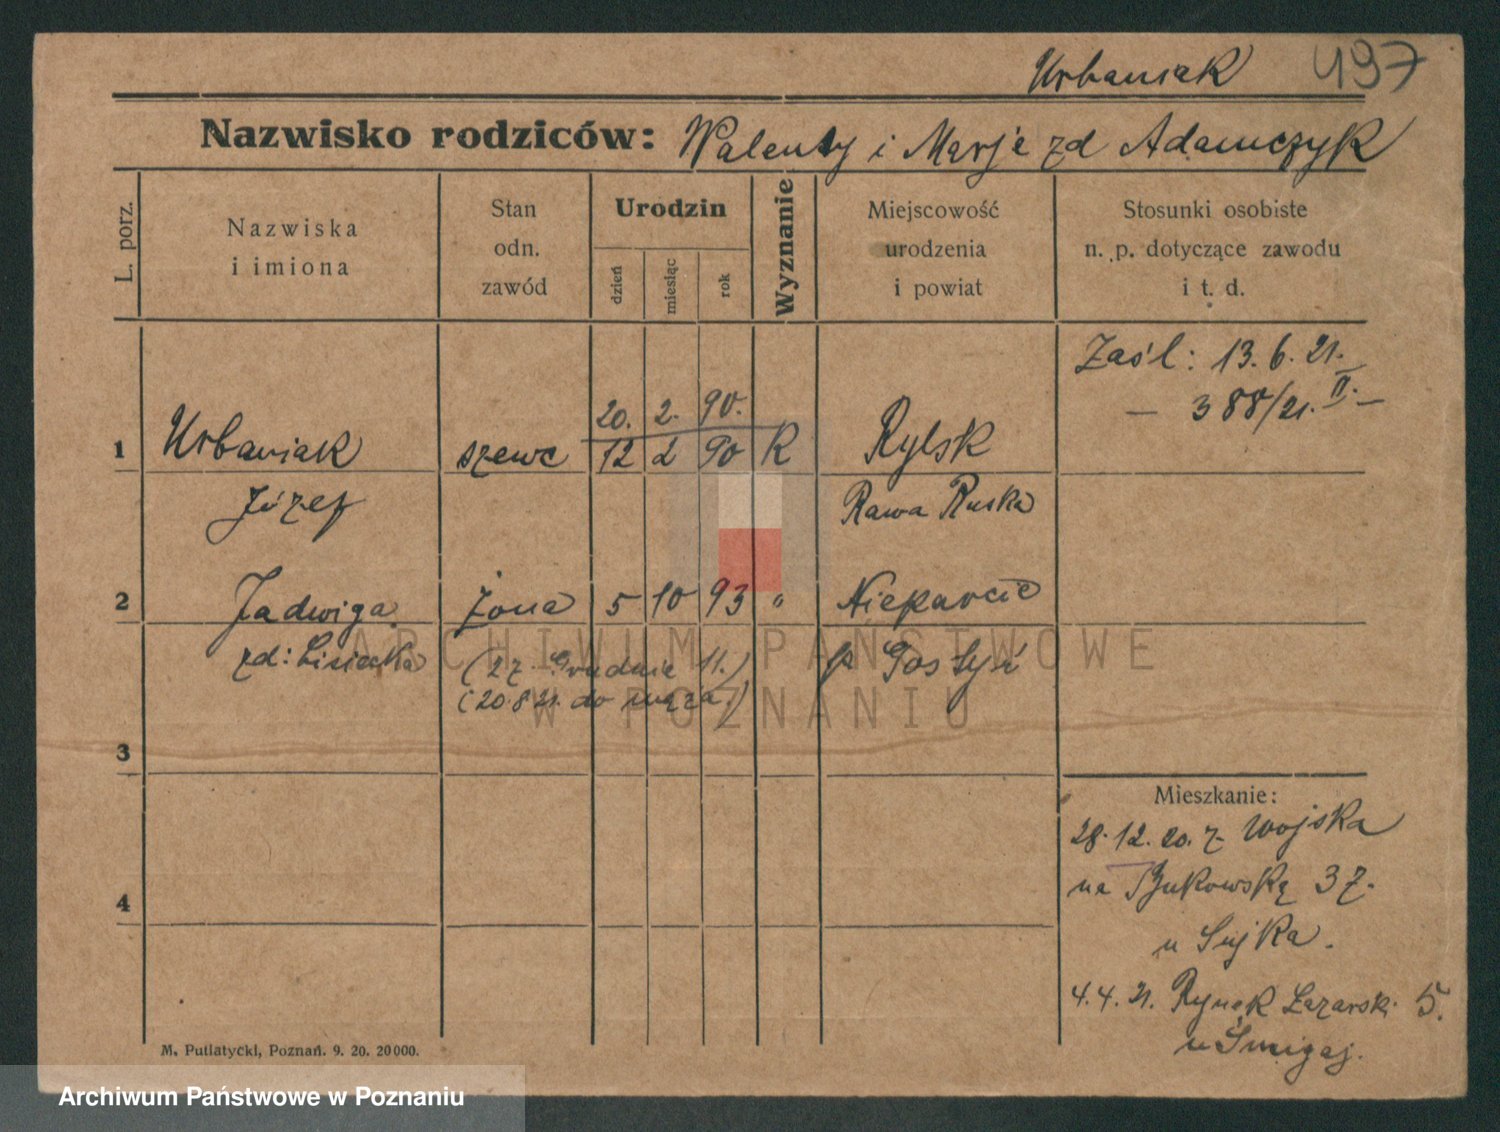 Urbaniak 497
Nazwisko rodziców: Walenty i Marje zd Adamczyk
L. porz.
Nazwiska
i imiona
Stan
odn.
zawód
Urodzin
dzień
miesiąc
rok
Wyznanie
Miejscowość
urodzenia
i powiat
Stosunki osobiste
n. p. dotyczące zawodu
i t. d.
Zaśl: 13. 6. 21.
— 388/21. II. —
20. 2. 90.
1 Urbaniak szewc 12 2 90 R Rylsk
Józef Rawa Ruska
2 Jadwiga żona 5 10 93 " Nieparcie
zd: Lisiecka (27. Grudnie 11.) p Gostyń
(20.8.21. do męża.)
3
4
Mieszkanie:
28.12.20. z wojska
na Bukowską 37.
u Sujka.
4.4.21. Rynek Łazarski 5.
u Śmigaj.
M. Putiatycki, Poznań. 9. 20. 20000.
ARCHIWUM PAŃSTWOWE
W POZNANIU
Archiwum Państwowe w Poznaniu